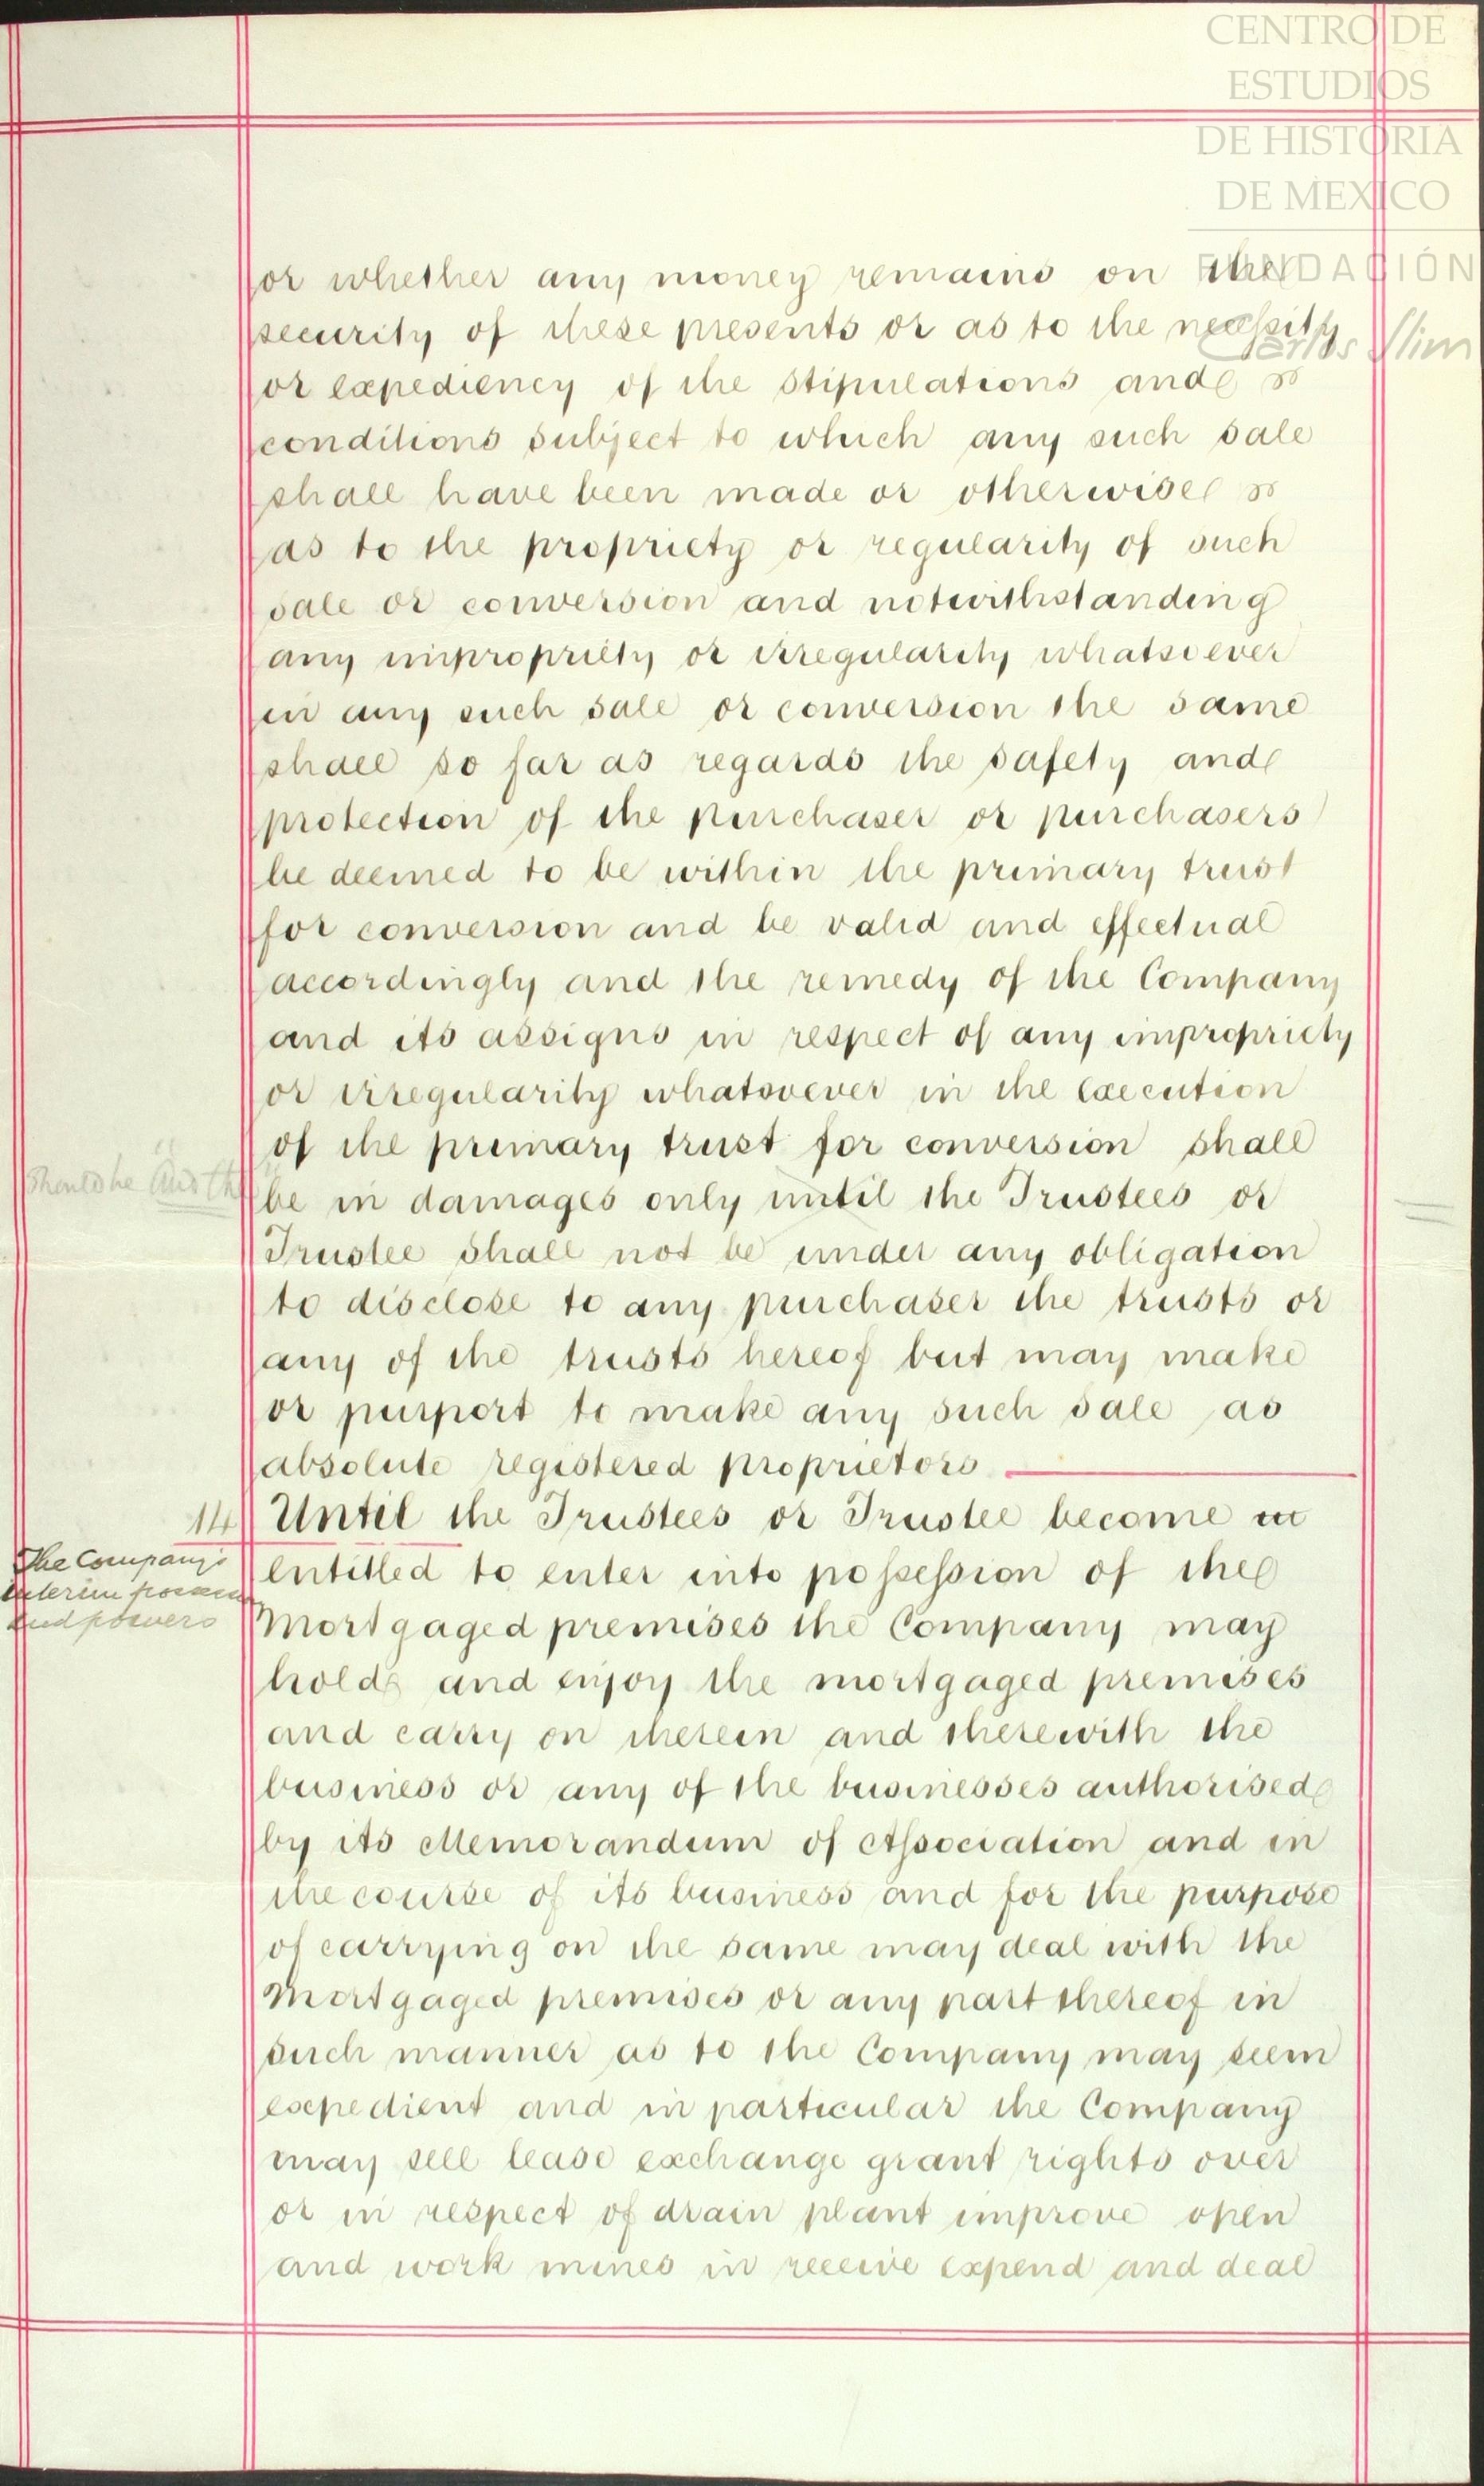 CENTRO DE
ESTUDIOS
DE HISTORIA
DE MEXICO
FUNDACIÓN
Carlos Slim
or whether any money remains on the
security of these presents or as to the necessity
or expediency of the stipulations and
conditions subject to which any such sale
shall have been made or otherwise
as to the propriety or regularity of such
sale or conversion and notwithstanding
any impropriety or irregularity whatsoever
in any such sale or conversion the same
shall so far as regards the safety and
protection of the purchaser or purchasers
be deemed to be within the primary trust
for conversion and be valid and effectual
accordingly and the remedy of the Company
and its assigns in respect of any impropriety
or irregularity whatsoever in the execution
of the primary trust for conversion shall
should be "and the"
be in damages only until the Trustees or
Trustee shall not be under any obligation
to disclose to any purchaser the trusts or
any of the trusts hereof but may make
or purport to make any such sale as
absolute registered proprietors
14 Until the Trustees or Trustee become
The Company's
interim
and powers
entitled to enter into possession of the
Mortgaged premises the Company may
hold and enjoy the mortgaged premises
and carry on therein and therewith the
business or any of the businesses authorised
by its Memorandum of Association and in
the course of its business and for the purpose
of carrying on the same may deal with the
Mortgaged premises or any part thereof in
such manner as to the Company may seem
expedient and in particular the Company
may sell lease exchange grant rights over
or in respect of drain plant improve open
and work mines in receive expend and deal